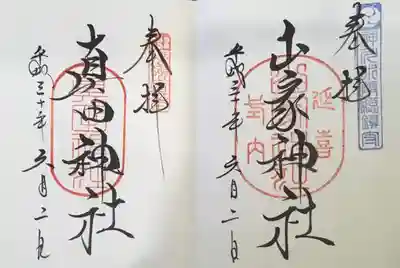 奉拝
真田神社
平成三十年六月二日
奉拝
山家神社
平成三十年六月二日
延喜
式内